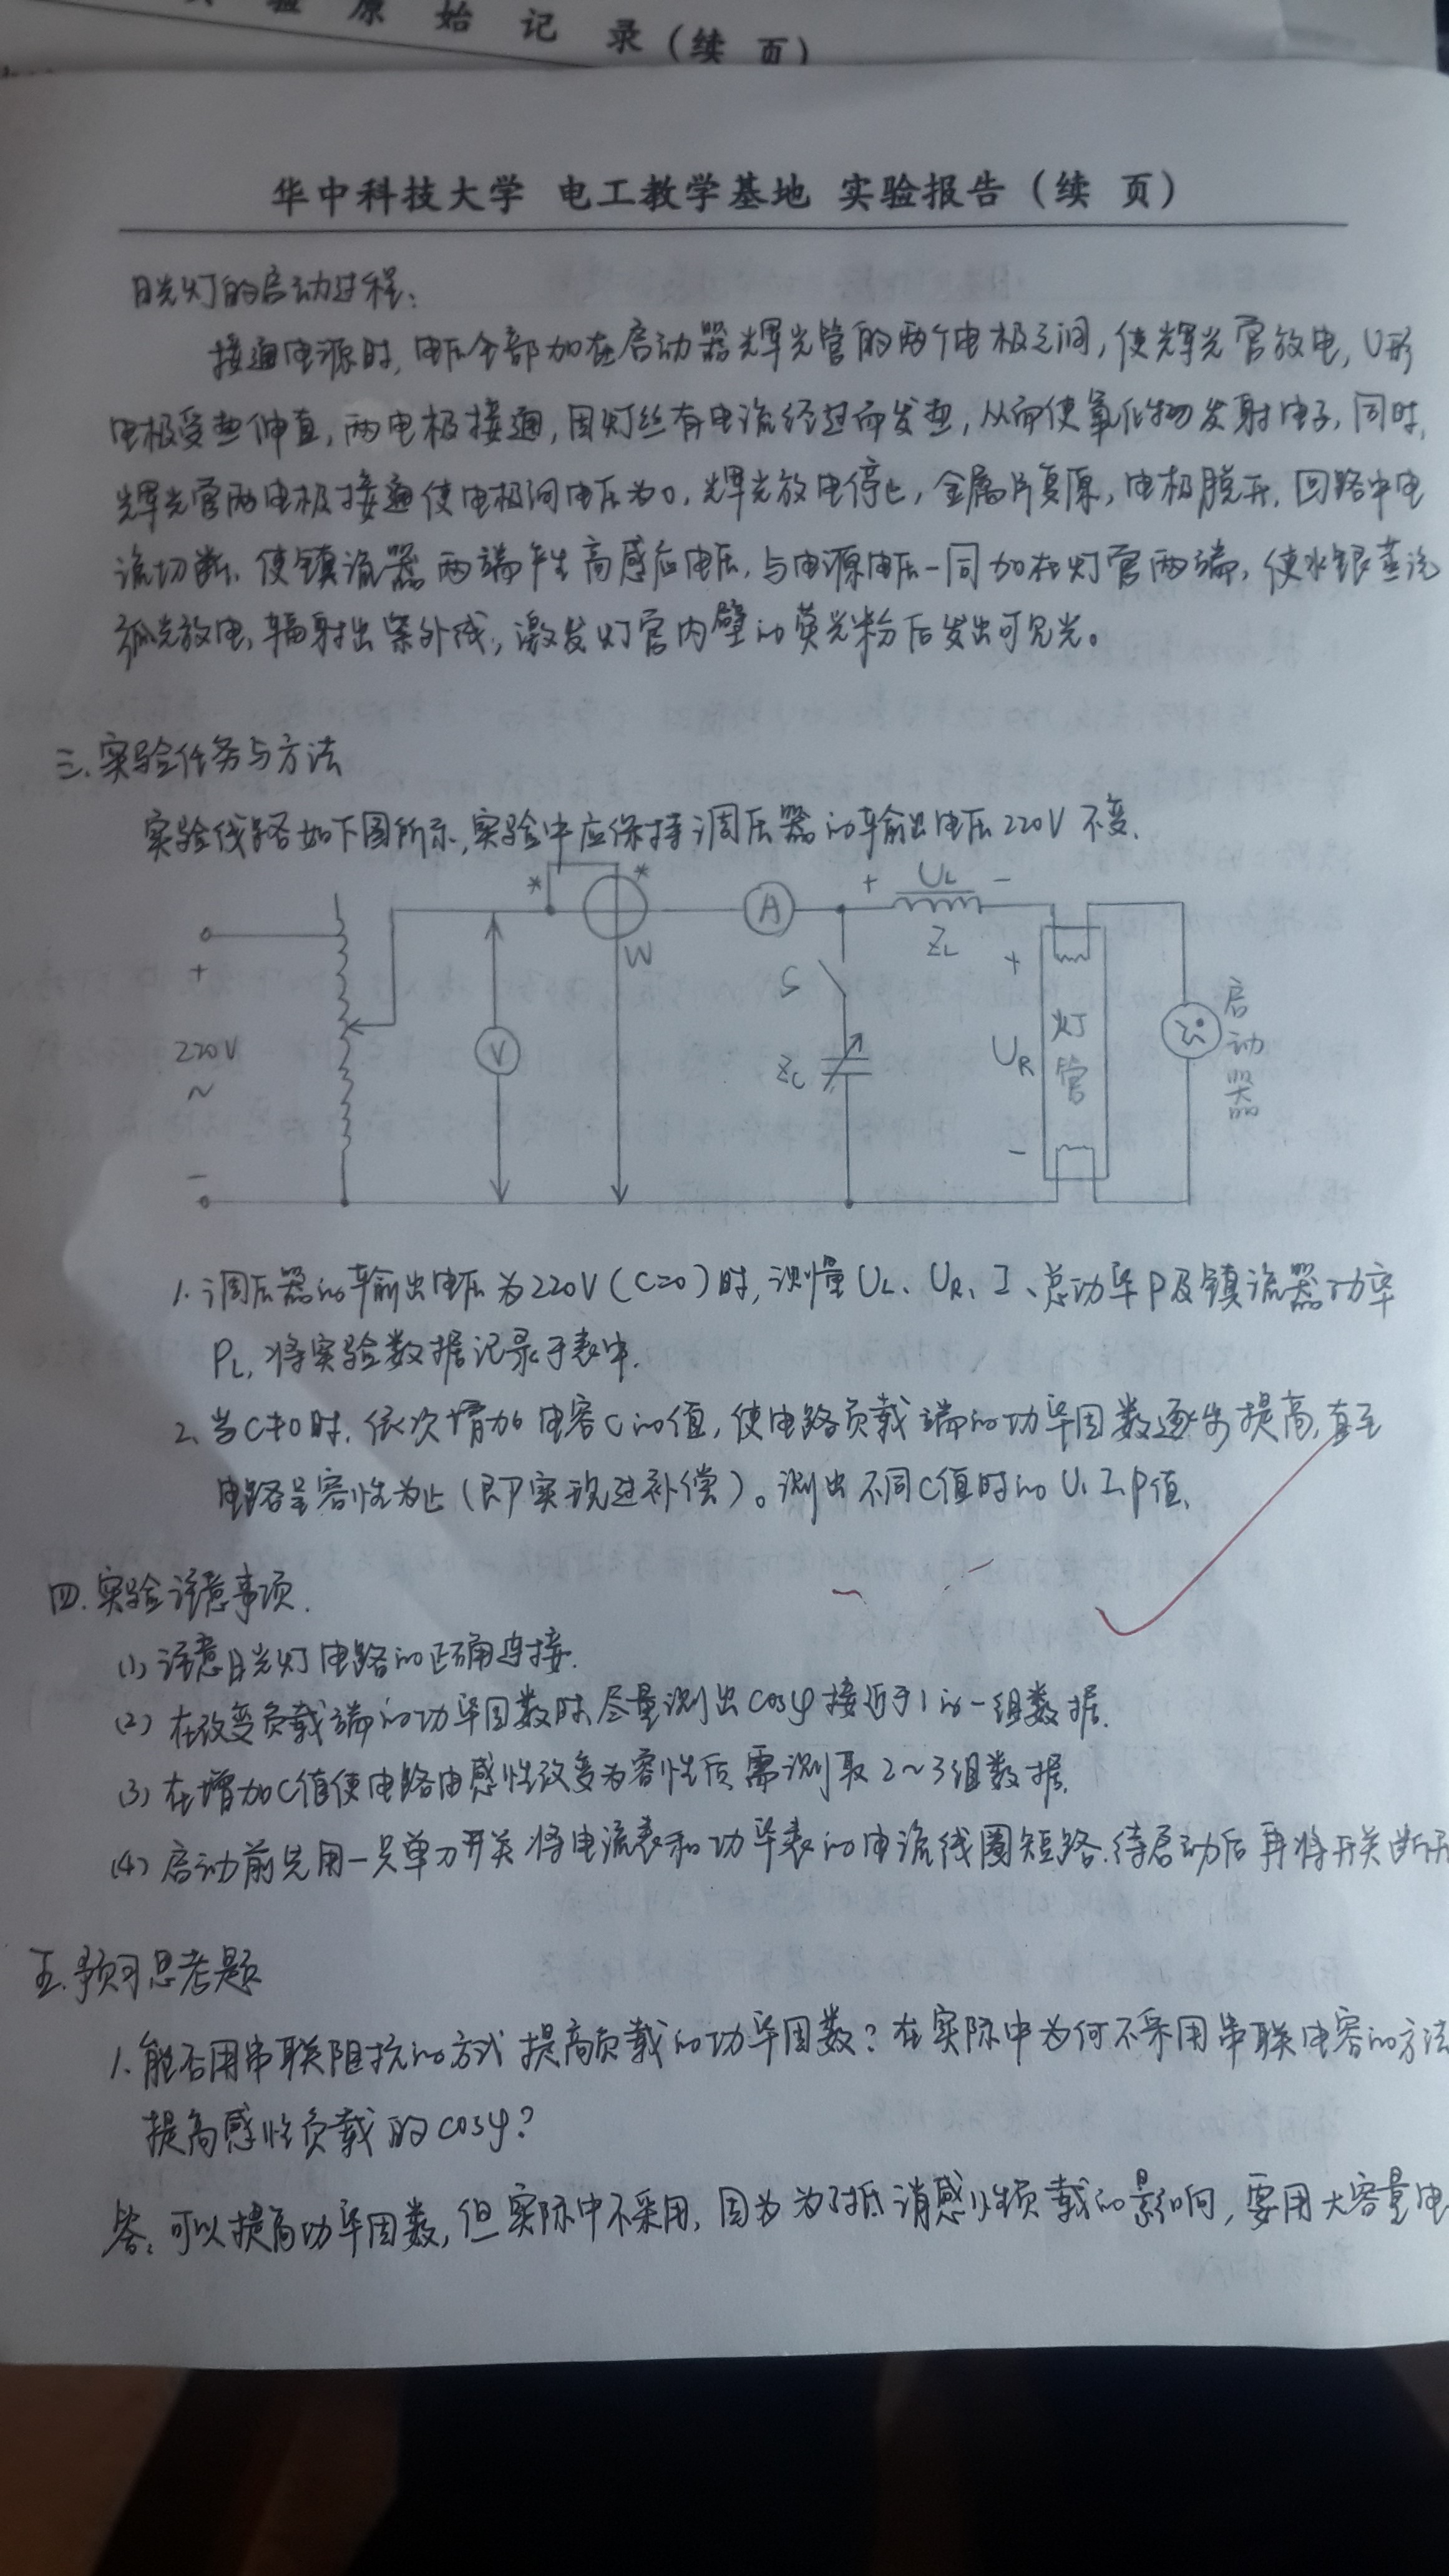 验原始记录(续 页)
华中科技大学 电工教学基地 实验报告(续 页)
日光灯的启动过程:
接通电源时,电压全部加在启动器辉光管的两个电极之间,使辉光管放电,U形
电极受热伸直,两电极接通,因灯丝有电流经过而发热,从而使氧化物发射电子,同时,
辉光管两电极接通使电极间电压为0,辉光放电停止,金属片复原,电极脱开,回路中电
流切断,使镇流器两端产生高感应电压,与电源电压一同加在灯管两端,使水银蒸汽
弧光放电,辐射出紫外线,激发灯管内壁的荧光粉后发出可见光。
三.实验任务与方法
实验线路如下图所示,实验中应保持调压器的输出电压220V不变.
* * W A + UL - ZL
+ 220V ~ -
V
S ZC
+ UR -
灯管
启动器
1.调压器的输出电压为220V(C=0)时,测量UL、UR、I、总功率P及镇流器功率
PL,将实验数据记录于表中.
2.当C≠0时,依次增加电容C的值,使电路负载端的功率因数逐步提高,直至
电路呈容性为止(即实现过补偿)。测出不同C值时的U、I、P值.
四.实验注意事项.
(1)注意日光灯电路的正确连接.
(2)在改变负载端的功率因数时,尽量测出cosφ接近于1的一组数据.
(3)在增加C值使电路由感性改变为容性后需测取2~3组数据.
(4)启动前先用一只单刀开关将电流表和功率表的电流线圈短路.待启动后再将开关断开
五.预习思考题
1.能否用串联阻抗的方式提高负载的功率因数?在实际中为何不采用串联电容的方法
提高感性负载的cosφ?
答:可以提高功率因数,但实际中不采用,因为为抵消感性负载的影响,要用大容量电